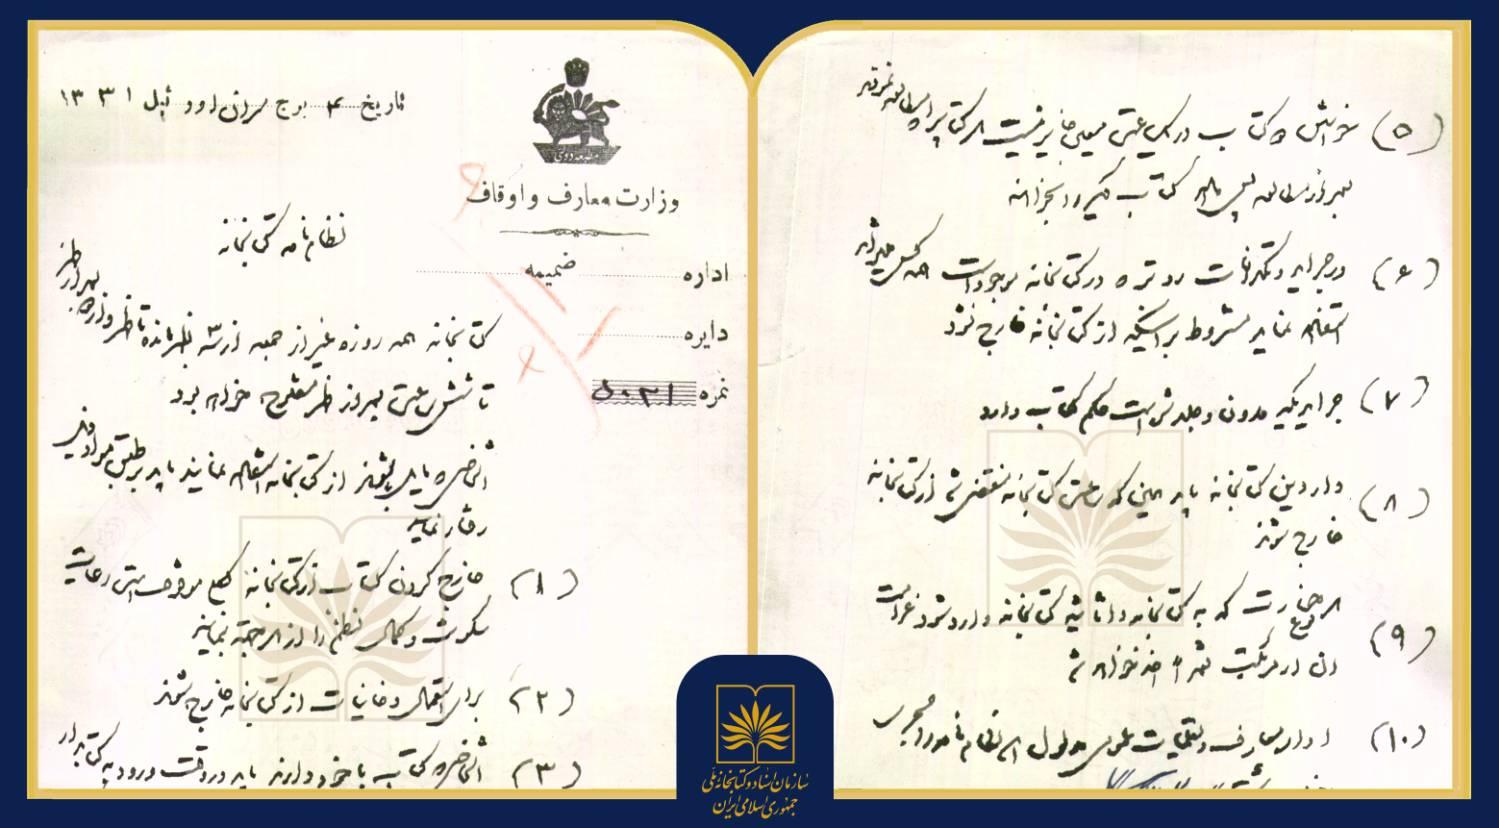 تاریخ ۴ برج سرطان اود ئیل ۱۳۳۱
وزارت معارف و اوقاف
اداره ضمیمه
دایره
نمره ۵۰۲۱
نظام نامه کتابخانه
کتابخانه همه روزه غیر از جمعه از سه بظهر مانده تا ظهر و از بعد از ظهر
تا شش ساعت بعد از ظهر مفتوح خواهد بود
اشخاصی که مایل باشند از کتابخانه استفاده نمایند باید بر طبق مواد ذیل
رفتار نمایند
(۱) خارج کردن کتاب از کتابخانه موقوف است رعایت
سکوت و کمال نظم را از هر جهة بنمایند
(۲) برای استعمال دخانیات از کتابخانه خارج شوند
(۳) اشخاصی که کتاب با خود دارند باید در وقت ورود به کتابدار
(۵) خواهش کتاب در ساعت معین هر کتاب را مطالعه نمودند
بعد از مطالعه پس داده کتاب دیگر را بخواهند
(۶) در جراید و که در کتابخانه موجود است همه کس میتواند
استفاده نماید مشروط بر اینکه از کتابخانه خارج نشود
(۷) جرایدیکه مدون و جلد شده است حکم کتاب دارد
(۸) واردین کتابخانه باید همین که ساعت کتابخانه منقضی شد از کتابخانه
خارج شوند
(۹) هر نوع خسارت که به کتابخانه و اثاثیه کتابخانه وارد شود غرامت
آن از مرتکب اخذ خواهد شد
(۱۰) اداره معارف مدلول این نظام نامه را مجری
سازمان اسناد و کتابخانه ملی
جمهوری اسلامی ایران